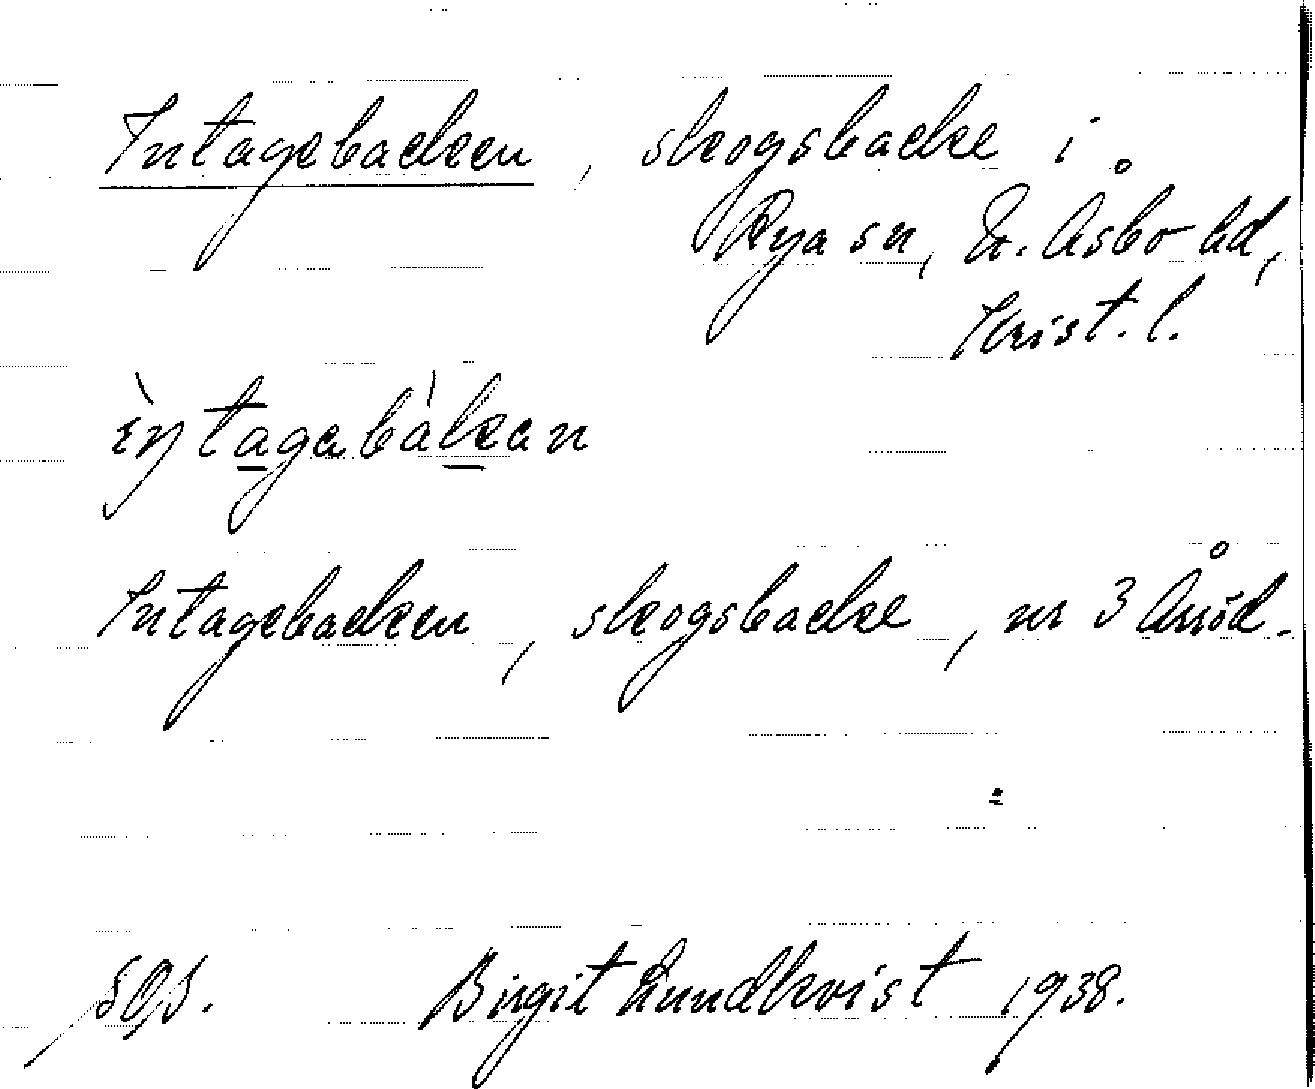 Intagebacken, skogsbacke i
Rya sn, N. Åsbo hd,
Krist. l.
ɛ̀ŋtagabàkan
Intagebacken, skogsbacke, nr 3 Årröd.
Birgit Lundkvist 1938.